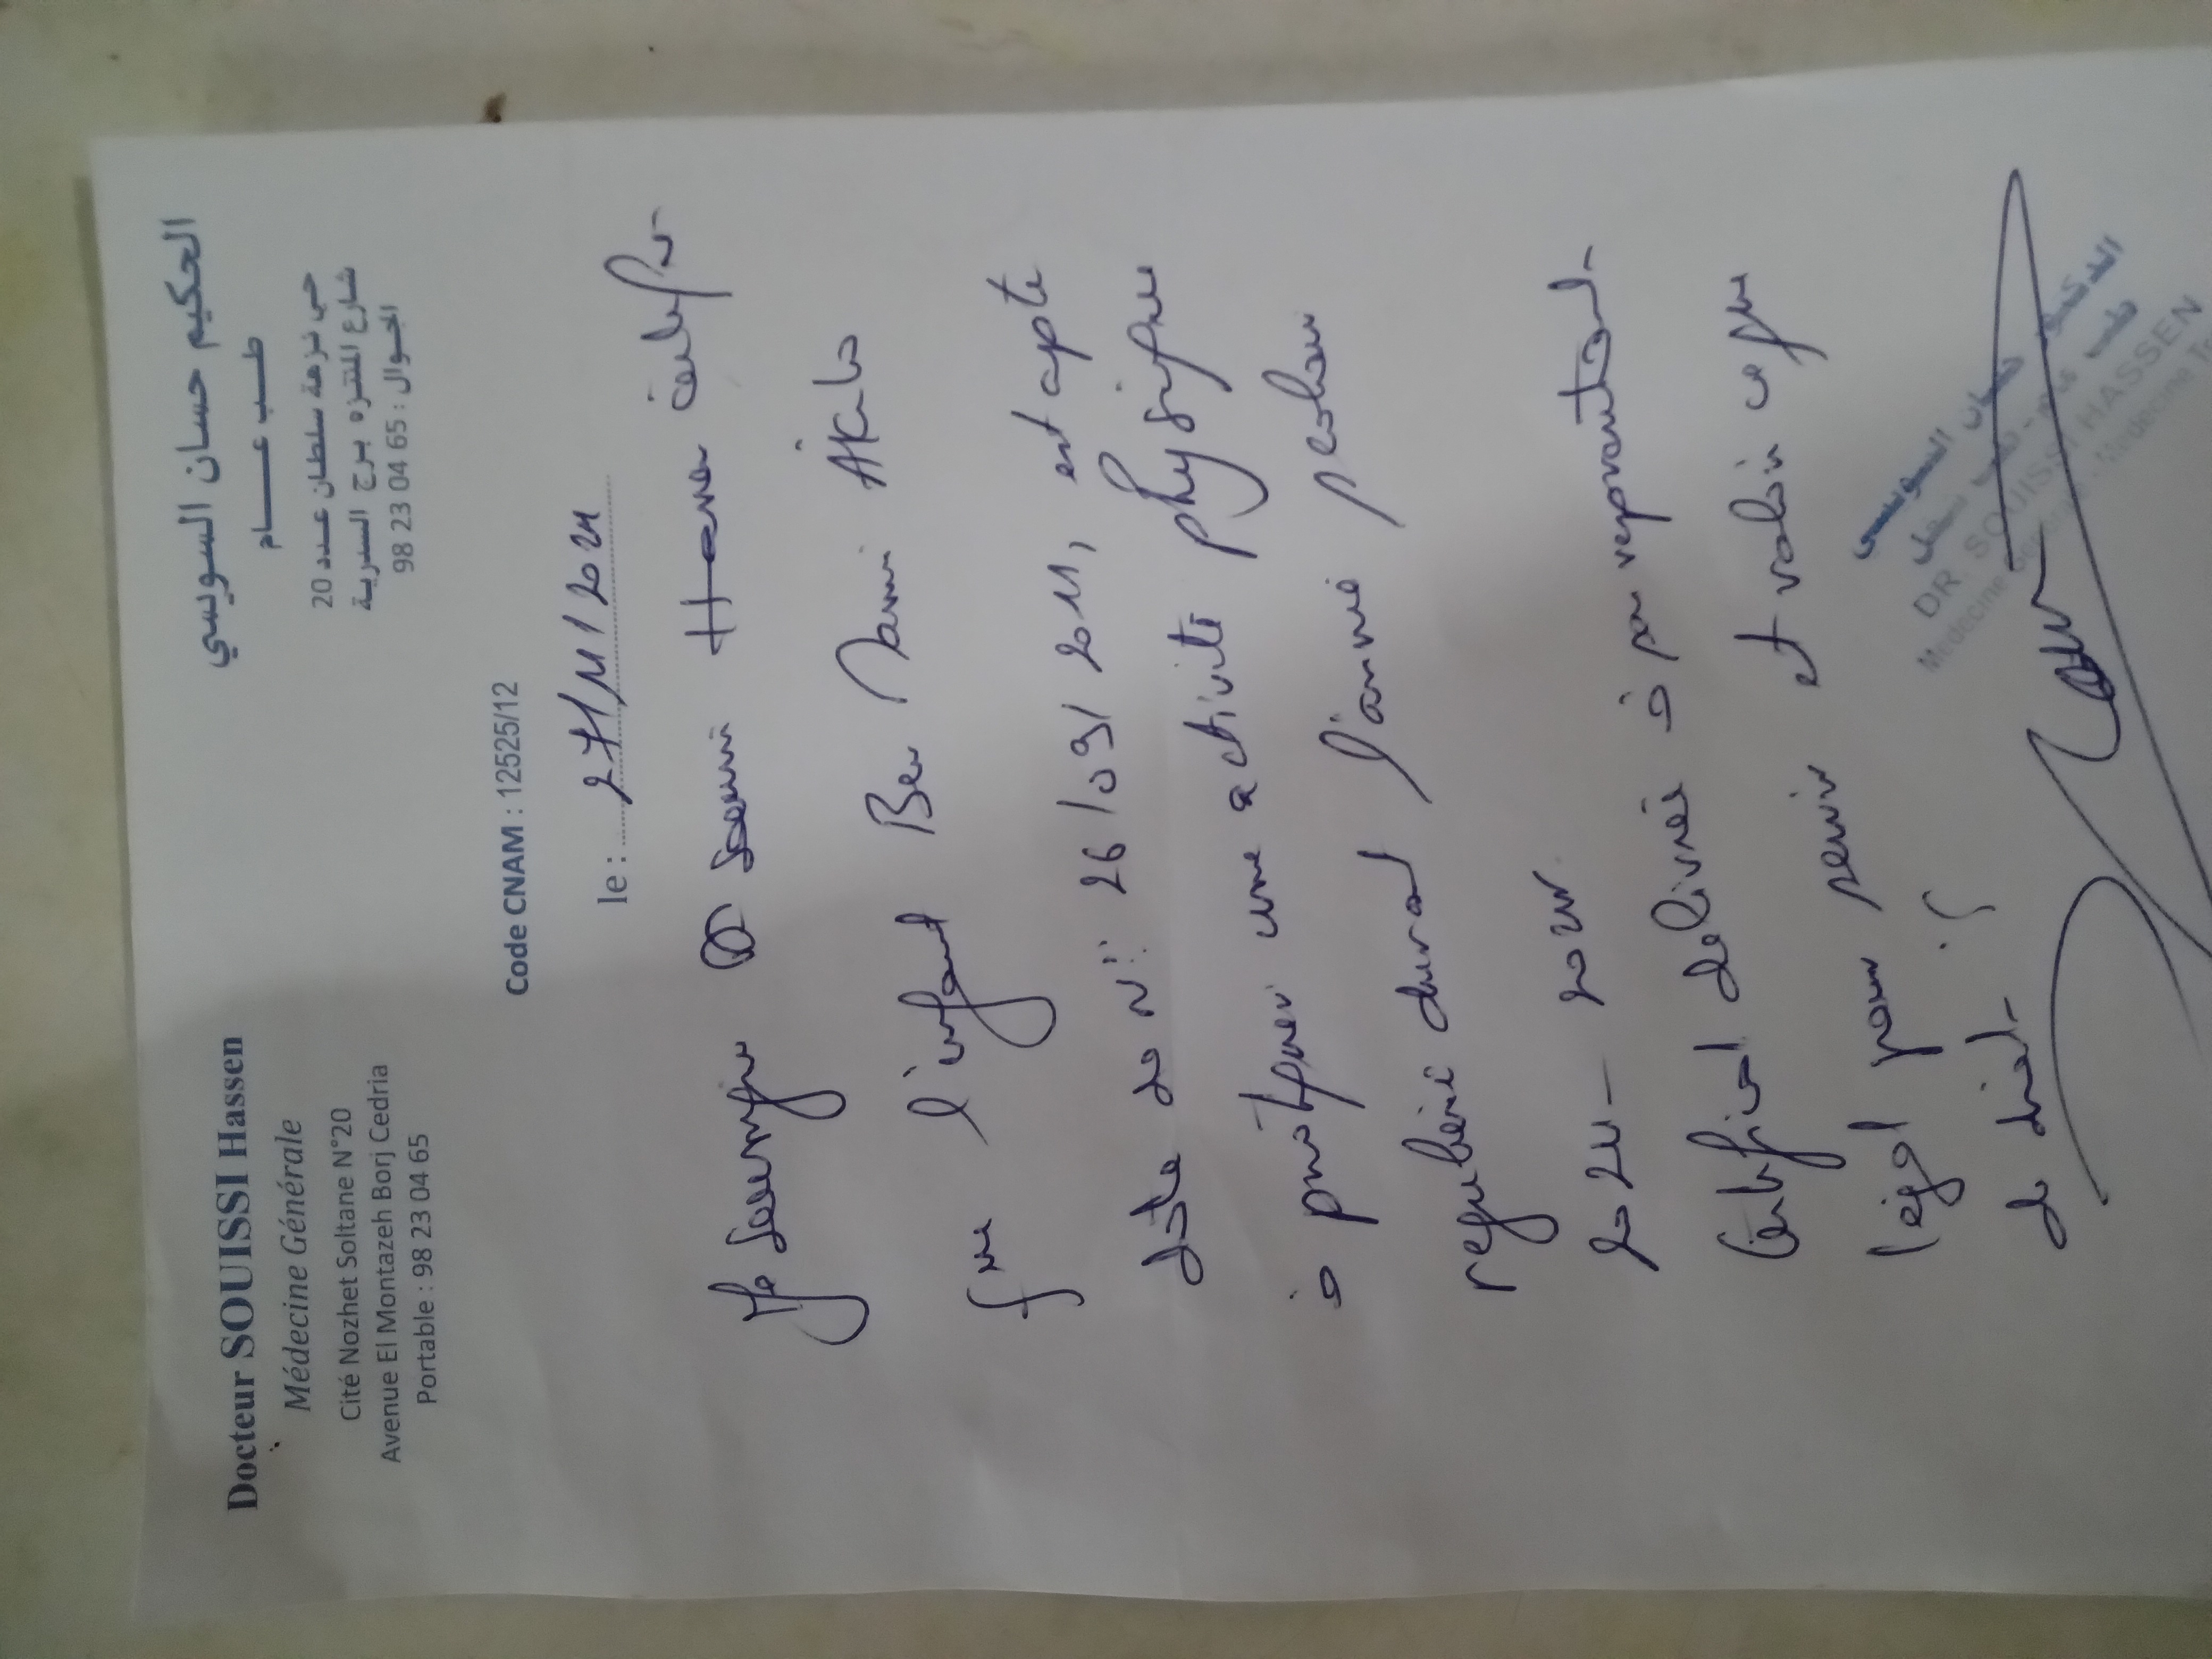 Docteur SOUISSI Hassen
Médecine Générale
Cité Nozhet Soltane N°20
Avenue El Montazeh Borj Cedria
Portable : 98 23 04 65
الحكيم حسان السويسي
طب عام
حي نزهة سلطان عدد 20
شارع المنتزه برج السدرية
الجوال : 98 23 04 65
Code CNAM : 12525/12
le : 27/11/2024
Je soussigné Dr Souissi Hassen certifie
que l'enfant Ben Sami
date de N : 26/09/2011, est apte
à pratiquer une activité physique
régulière durant l'année scolaire
2024-2025.
Certificat délivré à son représentant
légal pour servir et valoir ce que
de droit.
الدكتور حسان السويسي
DR. SOUISSI HASSEN
Médecine Générale - Médecine